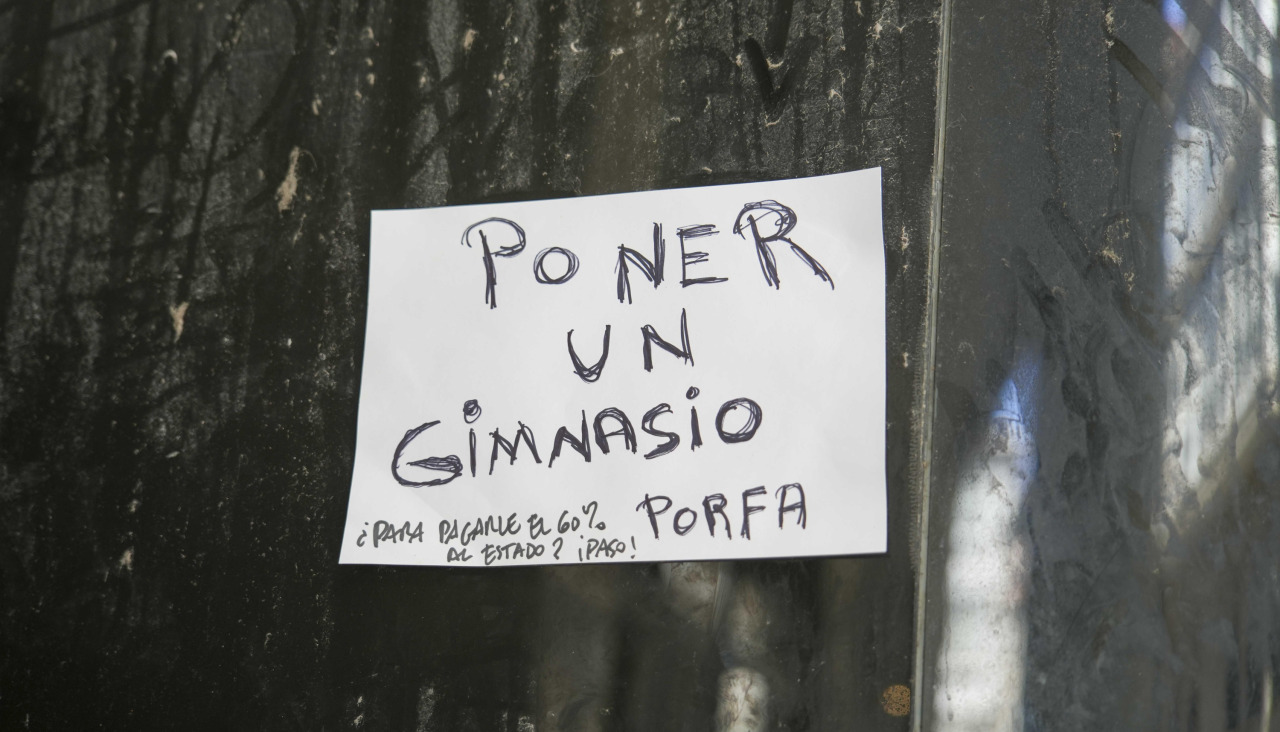 PONER
UN
GiMNASiO
PORFA
¿PARA PAGARLE EL 60%
AL ESTADO? ¡PASO!